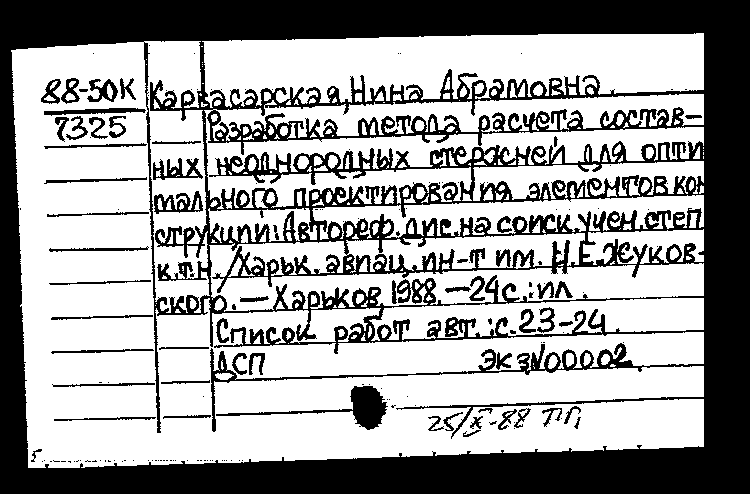 88-50К Карвасарская, Нина Абрамовна.
7325 Разработка метода расчета состав-
ных неоднородных стержней для опти
мального проектирования элементов кон
струкций: Автореф. дис. на соиск. учен. степ
к.т.н. / Харьк. авиац. ин-т им. Н.Е. Жуков-
ского. — Харьков, 1988. — 24 с.: ил.
Список работ авт.: с. 23-24.
ДСП Экз N00002.
25/X-88